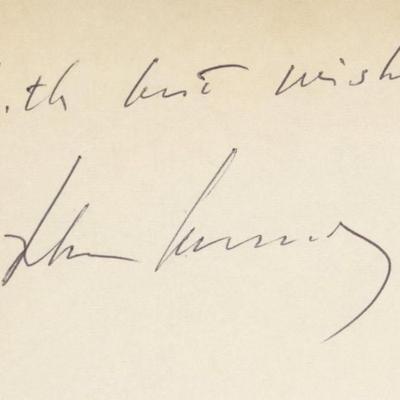 ith best wish
John Kennedy